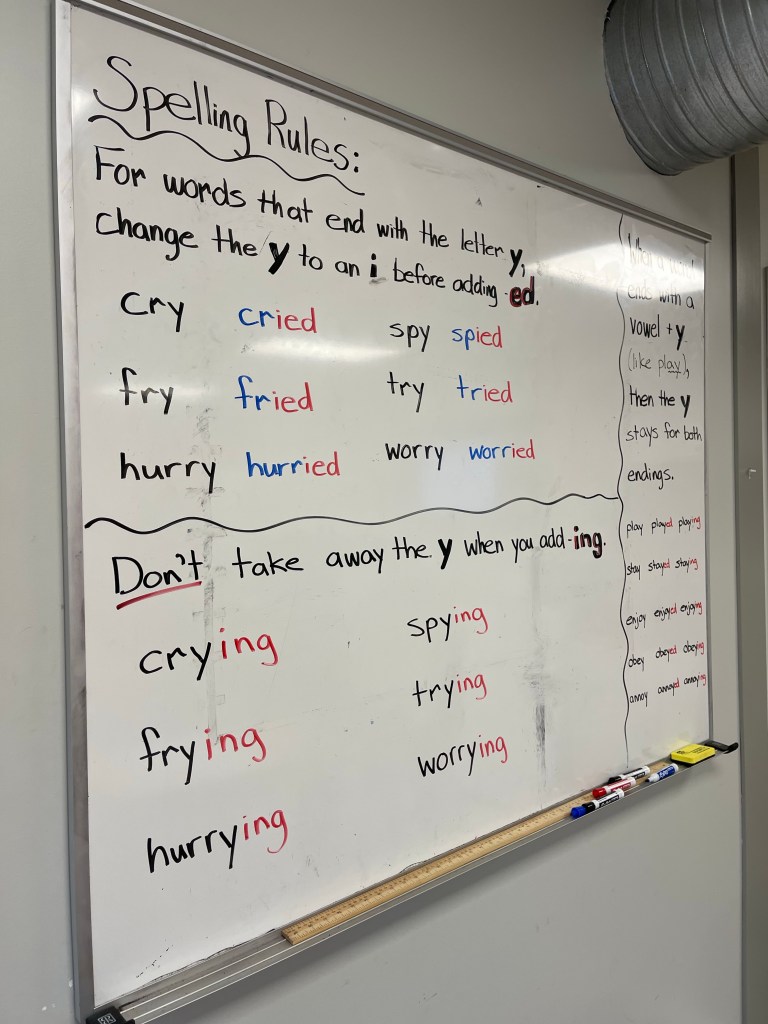 Spelling Rules:
For words that end with the letter y,
change the y to an i before adding -ed.
cry cried spy spied
fry fried try tried
hurry hurried worry worried
Don't take away the y when you add -ing.
crying spying
frying trying
hurrying worrying
When a word
ends with a
vowel + y
(like play),
then the y
stays for both
endings.
play played playing
stay stayed staying
enjoy enjoyed enjoying
obey obeyed obeying
annoy annoyed annoying